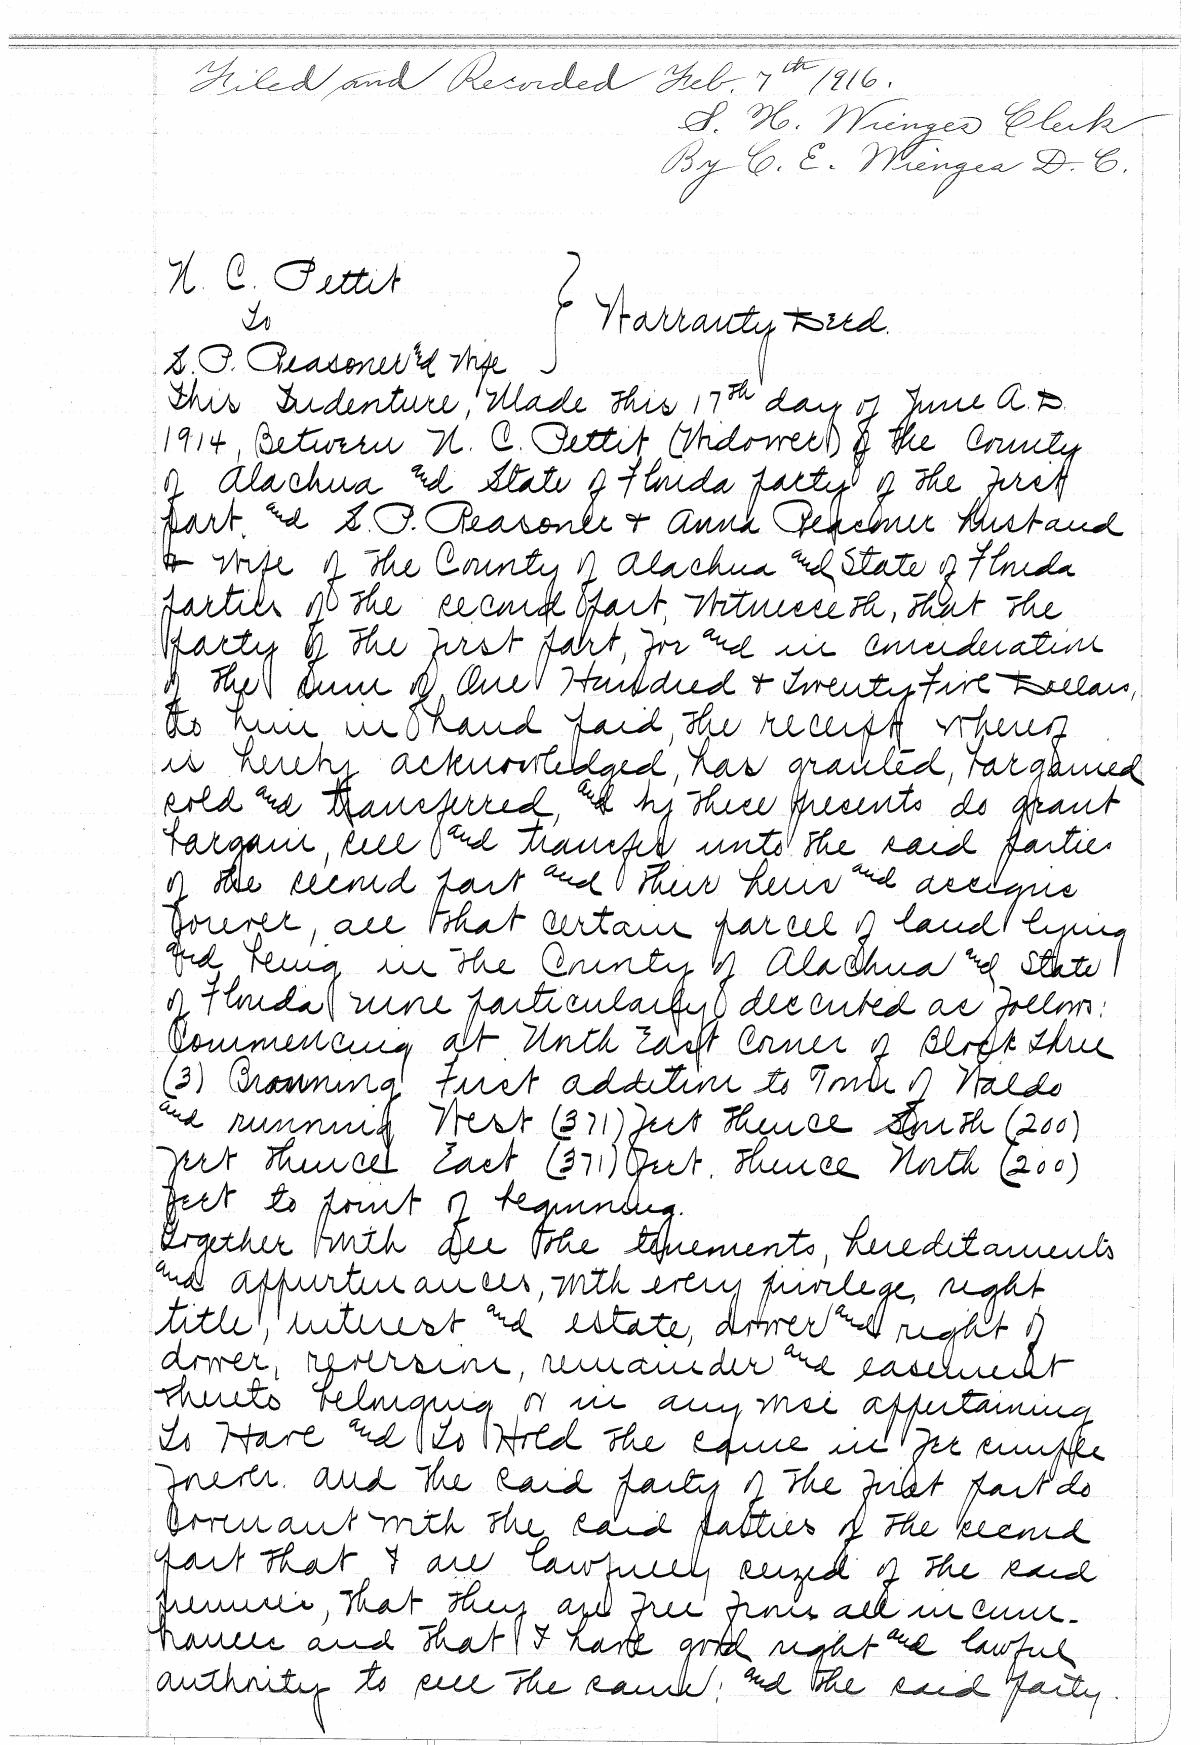 Filed and Recorded Feb. 7th 1916.
S. H. Wienges Clerk
By C. E. Wienges D. C.
N. C. Pettit
To
Warranty Deed.
S. P. Reasoner and Wife
This Indenture, Made this 17th day of June A. D.
1914, Between N. C. Pettit (Widower) of the County
of Alachua and State of Florida party of the first
part. and S. P. Reasoner & Anna Reasoner husband
& Wife of the County of Alachua and State of Florida
parties of the second part, Witnesseth, that the
party of the first part, for and in consideration
of the sum of One Hundred & Twenty Five Dollars,
to him in hand paid, the receipt whereof
is hereby acknowledged, has granted, bargained
sold and transferred, and by these presents do grant
bargain, sell and transfer unto the said parties
of the second part and their heirs and assigns
forever, all that certain parcel of land lying
and being in the County of Alachua and State
of Florida more particularly described as follows:
Commencing at North East Corner of Block Three
(3) Browning First addition to Town of Waldo
and running West (371) feet thence South (200)
feet thence East (371) feet. thence North (200)
feet to point of beginning.
Together with all the tenements, hereditaments
and appurtenances, with every privilege, right
title, interest and estate, dower and right of
dower, reversion, remainder and easement
thereto belonging or in any wise appertaining
To Have and To Hold the same in fee simple
forever. and the said party of the first part do
covenant with the said parties of the second
part that I are lawfully seized of the said
premises, that they are free from all incum-
brances and that I have good right and lawful
authority to sell the same; and the said party.